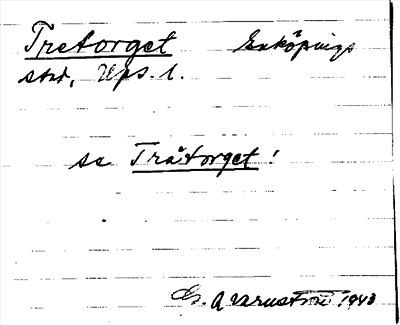 Tretorget Enköpings
stad, Ups. l.
se Tråtorget!
A Varnström 1943